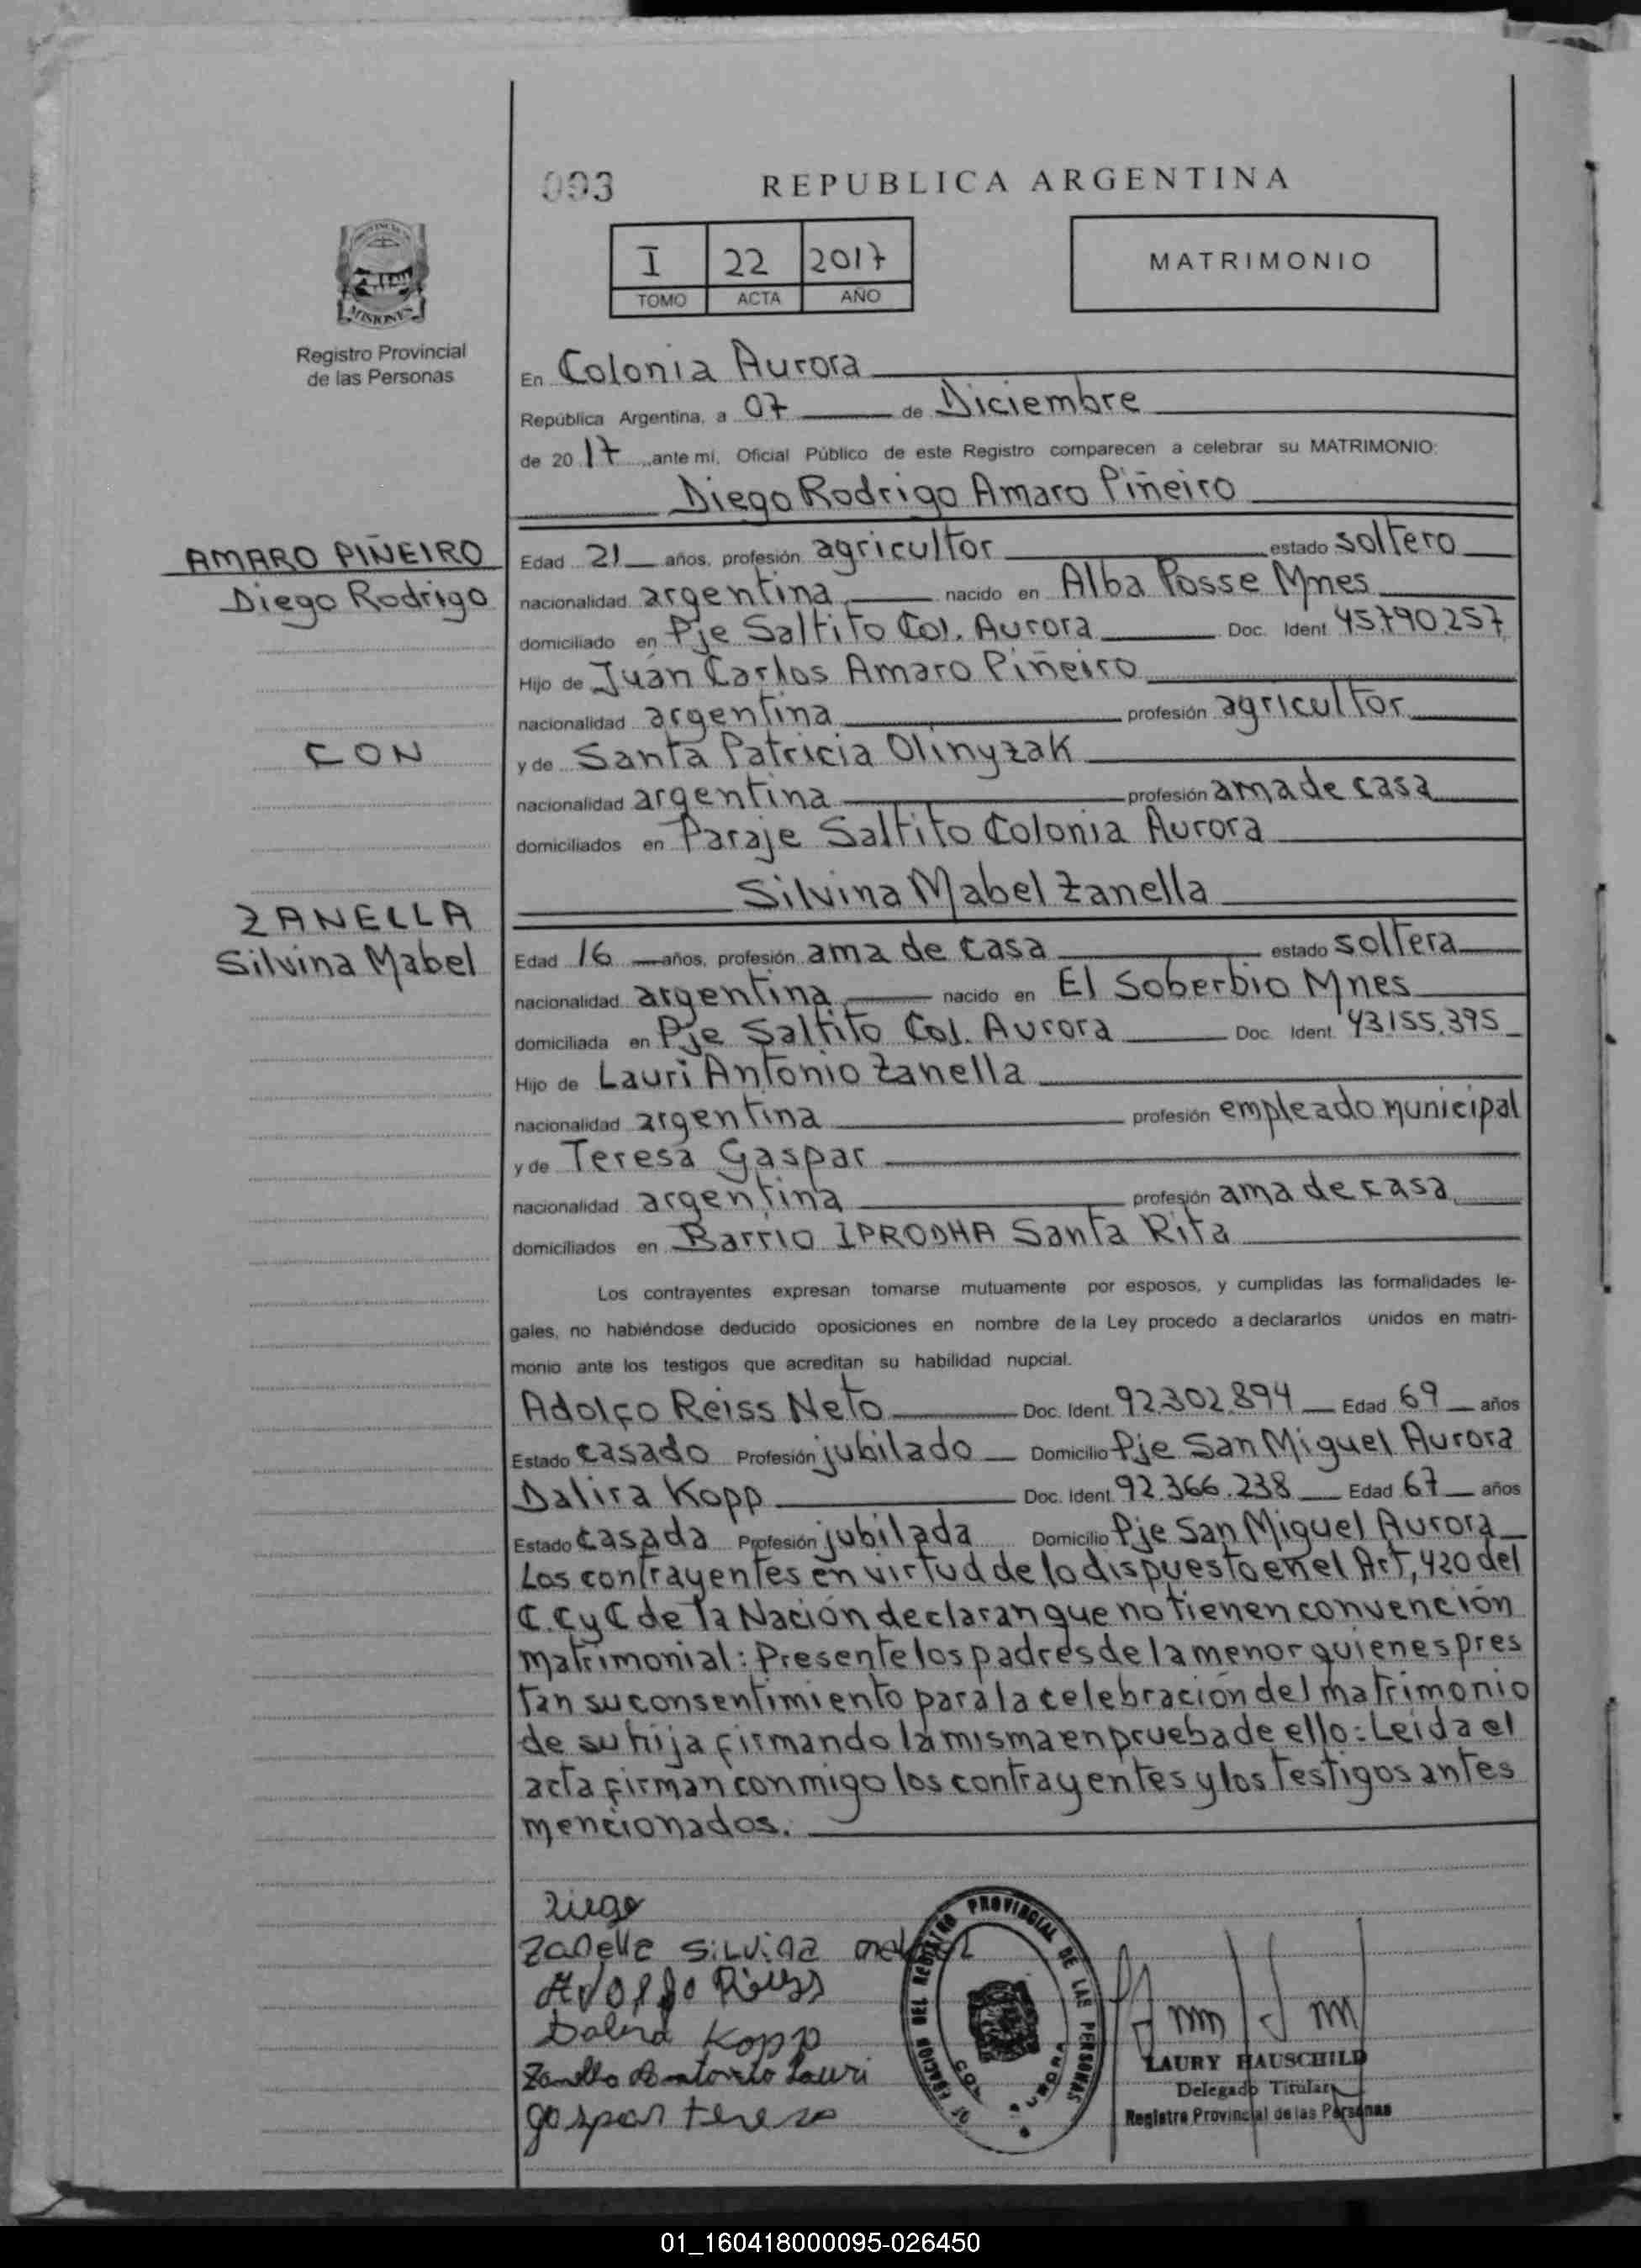 093
REPUBLICA ARGENTINA
I 22 2017
TOMO ACTA AÑO
MATRIMONIO
MISIONES
Registro Provincial
de las Personas
En Colonia Aurora
República Argentina, a 07 de Diciembre
de 2017 ante mi, Oficial Público de este Registro comparecen a celebrar su MATRIMONIO:
Diego Rodrigo Amaro Piñeiro
AMARO PIÑEIRO
Diego Rodrigo
CON
ZANELLA
Silvina Mabel
Edad 21 años, profesión agricultor estado soltero
nacionalidad argentina nacido en Alba Posse Mnes
domiciliado en Pje Saltito Col. Aurora Doc. Ident 45.790.257
Hijo de Juan Carlos Amaro Piñeiro
nacionalidad argentina profesión agricultor
y de Santa Patricia Olinyzak
nacionalidad argentina profesión ama de casa
domiciliados en Paraje Saltito Colonia Aurora
Silvina Mabel Zanella
Edad 16 años, profesión ama de casa estado soltera
nacionalidad argentina nacido en El Soberbio Mnes
domiciliada en Pje Saltito Col. Aurora Doc. Ident. 43.155.395
Hijo de Lauri Antonio Zanella
nacionalidad argentina profesión empleado municipal
y de Teresa Gaspar
nacionalidad argentina profesión ama de casa
domiciliados en Barrio IPRODHA Santa Rita
Los contrayentes expresan tomarse mutuamente por esposos, y cumplidas las formalidades le-
gales, no habiéndose deducido oposiciones en nombre de la Ley procedo a declararlos unidos en matri-
monio ante los testigos que acreditan su habilidad nupcial.
Adolfo Reiss Neto Doc. Ident. 92.302.894 Edad 69 años
Estado casado Profesión jubilado Domicilio Pje San Miguel Aurora
Dalira Kopp Doc. Ident. 92.366.238 Edad 67 años
Estado casada Profesión jubilada Domicilio Pje San Miguel Aurora
Los contrayentes en virtud de lo dispuesto en el Art, 420 del
C.CyC de la Nación declaran que no tienen convención
matrimonial: Presente los padres de la menor quienes pres
tan su consentimiento para la celebración del matrimonio
de su hija firmando la misma en prueba de ello: Leida el
acta firman conmigo los contrayentes y los testigos antes
mencionados.
Diego
Zanella Silvina
Adolfo Reiss
Dalira Kopp
Zanella Antonio Lauri
gaspar teresa
DEL REGISTRO PROVINCIAL DE LAS PERSONAS
LAURY HAUSCHILD
Delegado Titular
Registro Provincial de las Personas
01_160418000095-026450